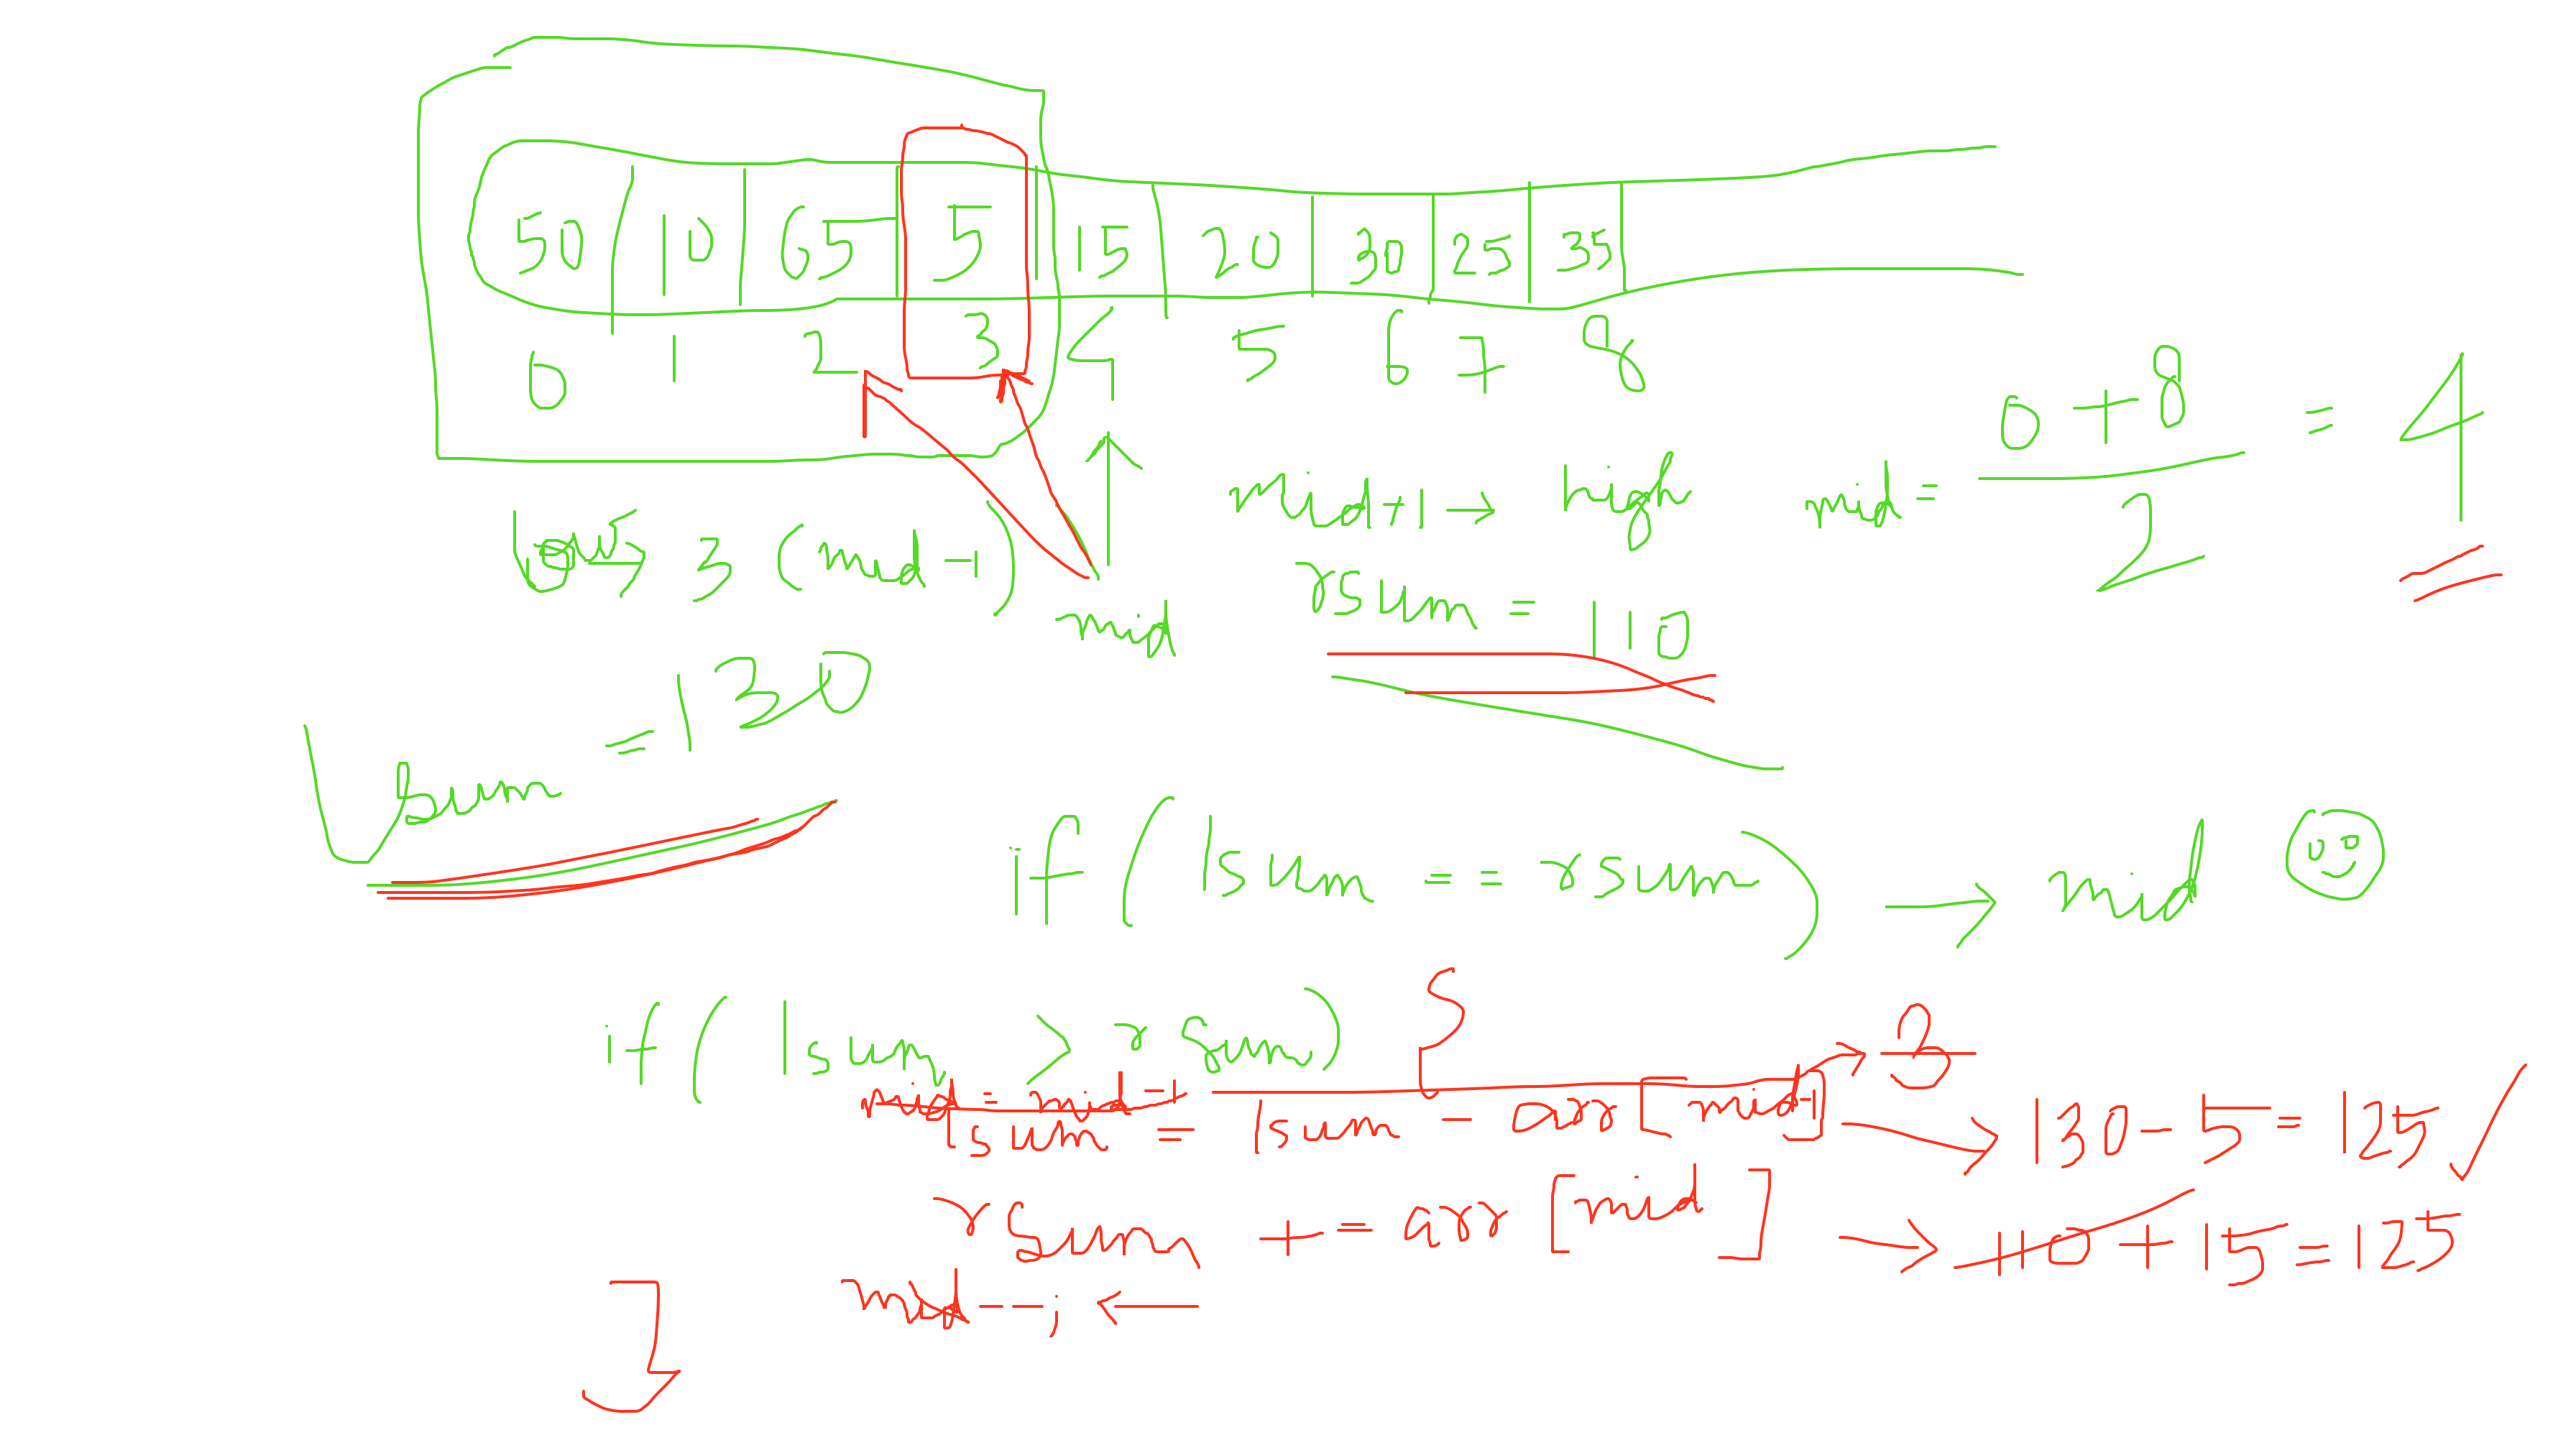 50 10 65 5 15 20 30 25 35
0 1 2 3 4 5 6 7 8
mid = 0 + 8 / 2 = 4
mid+1 → high
→ 3 (mid - 1)
mid
rsum = 110
lsum = 130
if ( lsum == rsum ) → mid
if ( lsum > rsum ) {
mid = mid - 1
lsum = lsum - arr [ mid-1 ] → 130 - 5 = 125
3
rsum += arr [ mid ] → 110 + 15 = 125
mid--; ←
}